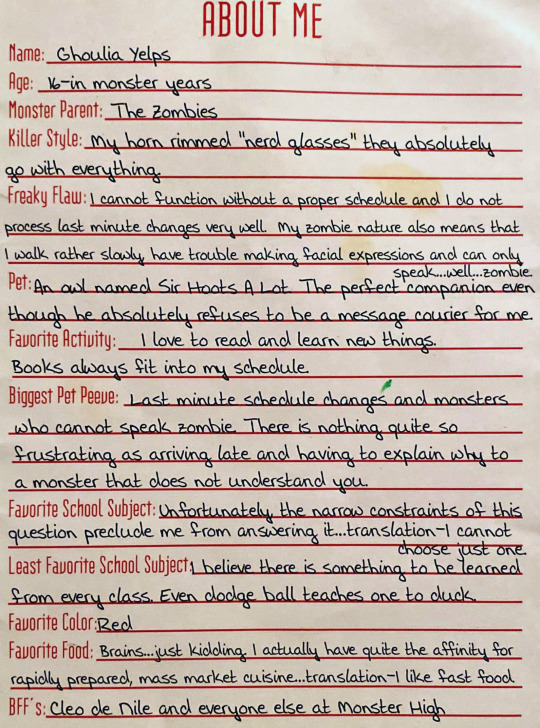 ABOUT ME
Name: Ghoulia Yelps
Age: 16-in monster years
Monster Parent: The Zombies
Killer Style: My horn rimmed "nerd glasses" they absolutely
go with everything.
Freaky Flaw: I cannot function without a proper schedule and I do not
process last minute changes very well. My zombie nature also means that
I walk rather slowly, have trouble making facial expressions and can only
speak...well...zombie.
Pet: An owl named Sir Hoots A Lot. The perfect companion even
though he absolutely refuses to be a message courier for me.
Favorite Activity: I love to read and learn new things.
Books always fit into my schedule.
Biggest Pet Peeve: Last minute schedule changes and monsters
who cannot speak zombie. There is nothing quite so
frustrating as arriving late and having to explain why to
a monster that does not understand you.
Favorite School Subject: Unfortunately the narrow constraints of this
question preclude me from answering it...translation-I cannot
choose just one.
Least Favorite School Subject: I believe there is something to be learned
from every class. Even dodge ball teaches one to duck.
Favorite Color: Red
Favorite Food: Brains...just kidding. I actually have quite the affinity for
rapidly prepared, mass market cuisine...translation-I like fast food.
BFF's: Cleo de Nile and everyone else at Monster High